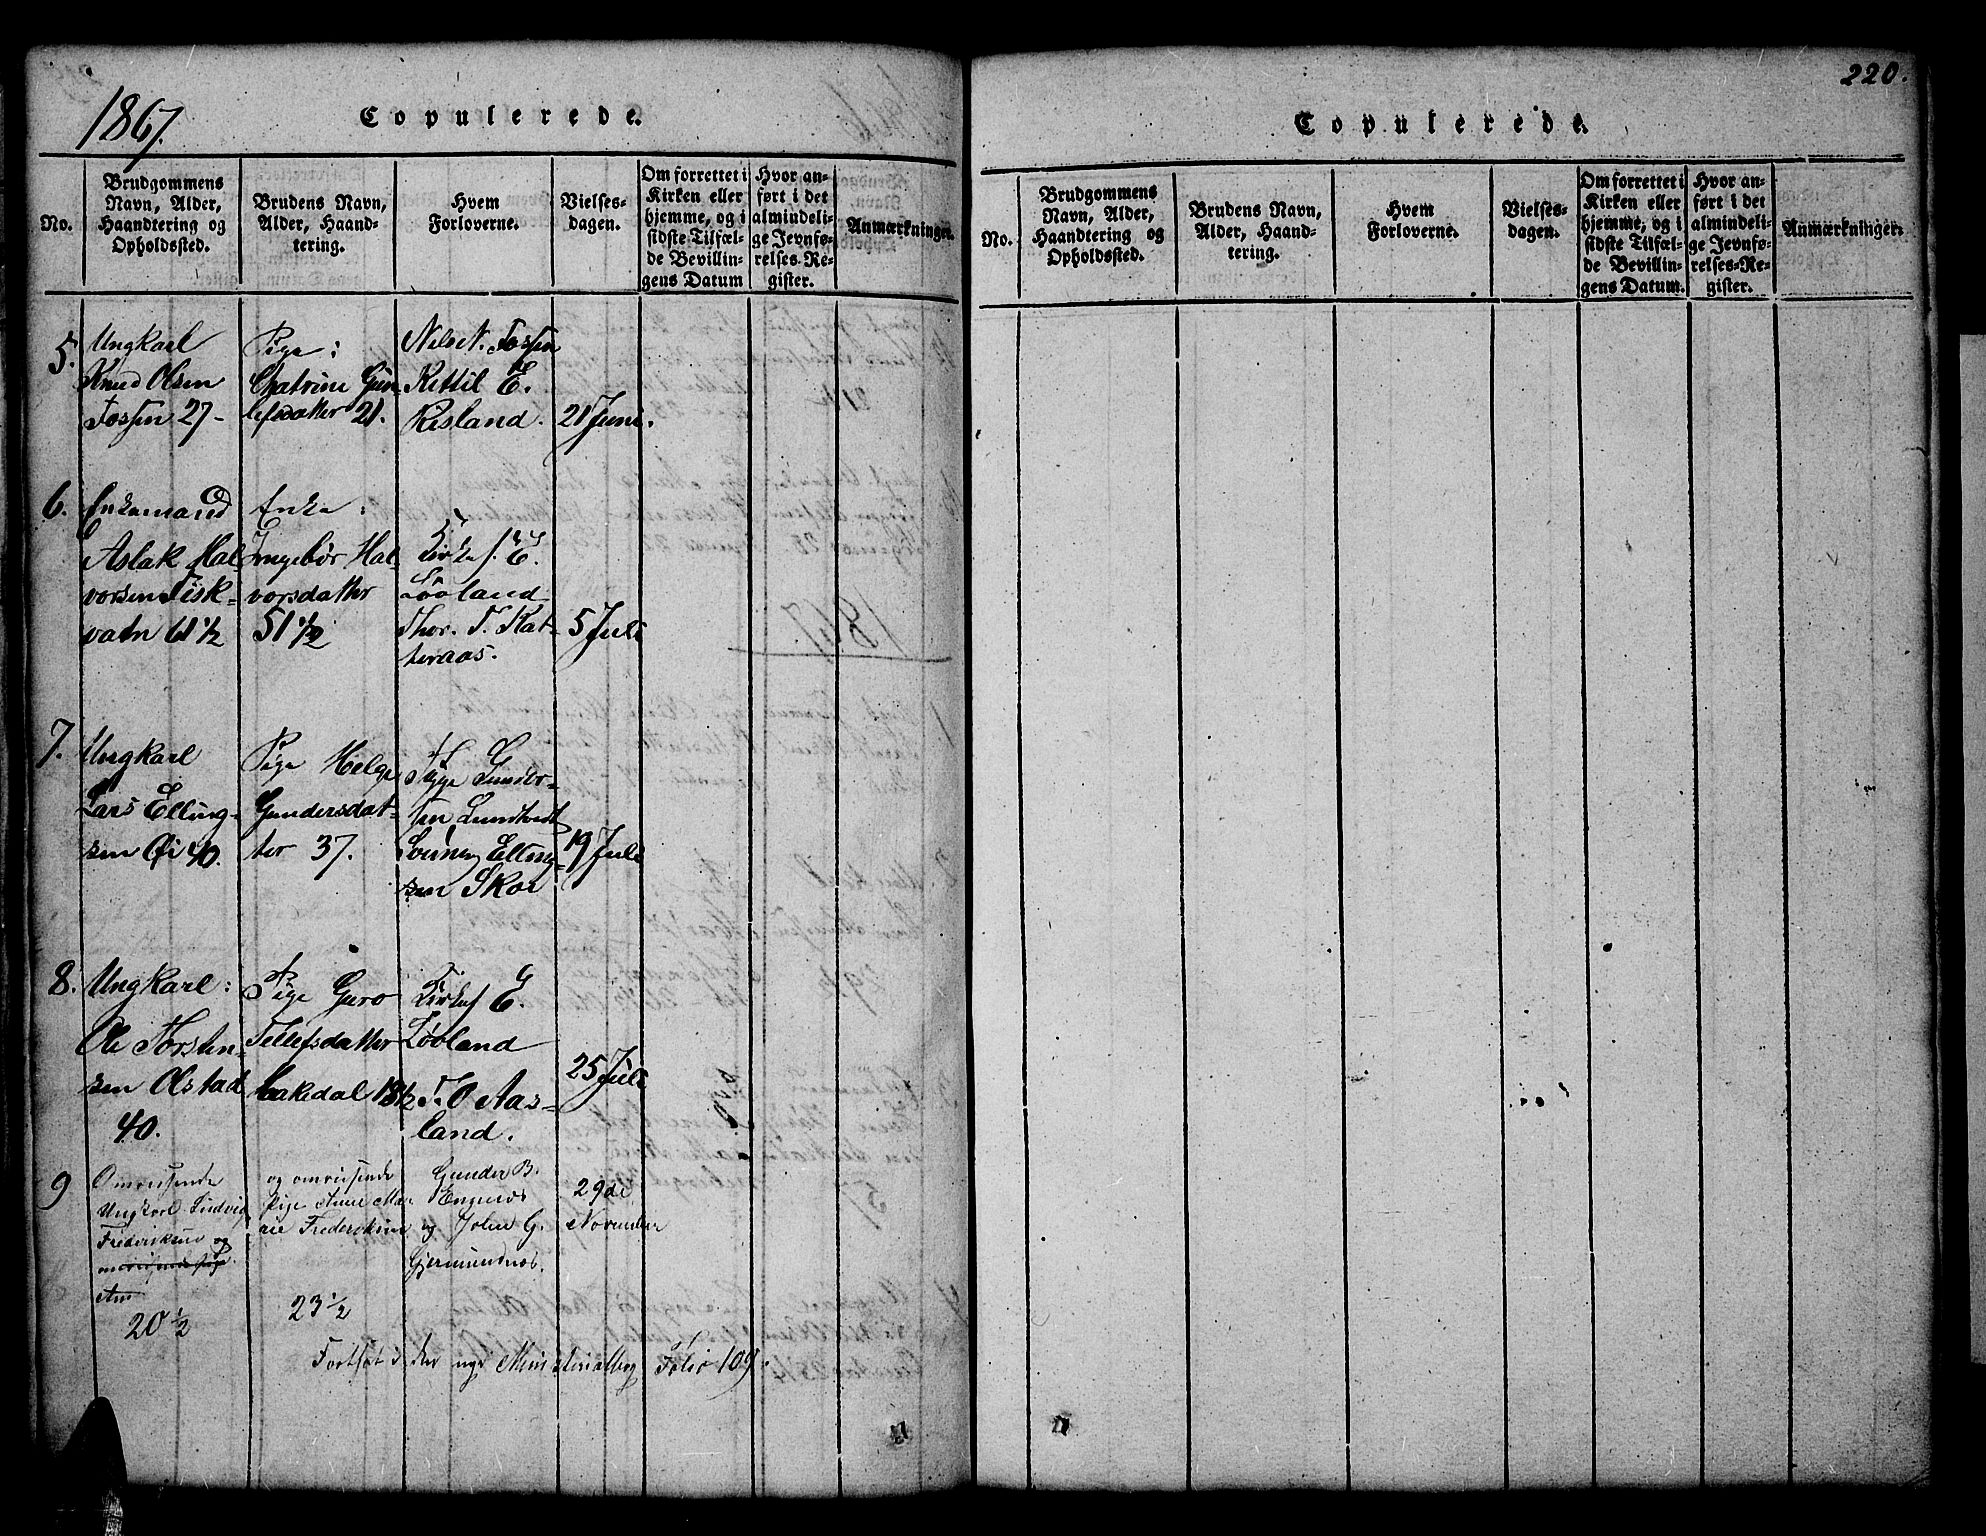 1867.
Copulerede.
No.
Brudgommens
Navn, Alder,
Haandtering og
Opholdssted.
Brudens Navn,
Alder, Haand-
tering.
Hvem
Forloverne.
Vielses-
dagen.
Om forrettet i
Kirken eller
hjemme, og i
sidste Tilfæl-
de Bevillin-
gens Datum
Hvor an-
ført i det
almindeli-
ge Jevnfø-
relses-Re-
gister.
Anmærkninger.
5.
Ungkarl
Knud Olsen
Fossen 27-
Pige:
Chatrine Gun-
lefsdatter 21.
Nils N. Fossen
Kettil E.
Risland.
21 Juni.
6.
Enkemand
Aslak Hal-
vorsen Fisk-
vatn 61 1/2
Enke:
Ingebør Hal-
vorsdatter
51 1/2
E.
Lövland
Thor. T. Kat-
teraas.
5 Juli
7.
Ungkarl
Lars Elling-
sen Øi 40.
Pige Helge
Gundersdat-
ter 37.
Gunder-
sen
Elling-
sen Skor
19 Juli
8.
Ungkarl:
Ole Torsten-
sen Olstad
40.
Pige Guro
Tellefsdatter
18 1/2
E.
Lövland
T. O Aas-
land.
25 Juli
9
Omreisende
Ungkarl Ludvig
Frederiksen og
omreisende pige
Ane
20 1/2
og omreisende
Pige Anne Ma-
rie Frederiksen
23 1/2
Gunder B.
Engenes
og John G.
Gjermundnes.
29de
November
Fortsat i den nye Ministerialbog Folio 109.
220.
Copulerede.
No.
Brudgommens
Navn, Alder,
Haandtering og
Opholdssted.
Brudens Navn,
Alder, Haand-
tering.
Hvem
Forloverne.
Vielses-
dagen.
Om forrettet i
Kirken eller
hjemme, og i
sidste Tilfæl-
de Bevillin-
gens Datum.
Hvor an-
ført i det
almindeli-
ge Jevnfø-
relses-Re-
gister.
Anmærkninger.